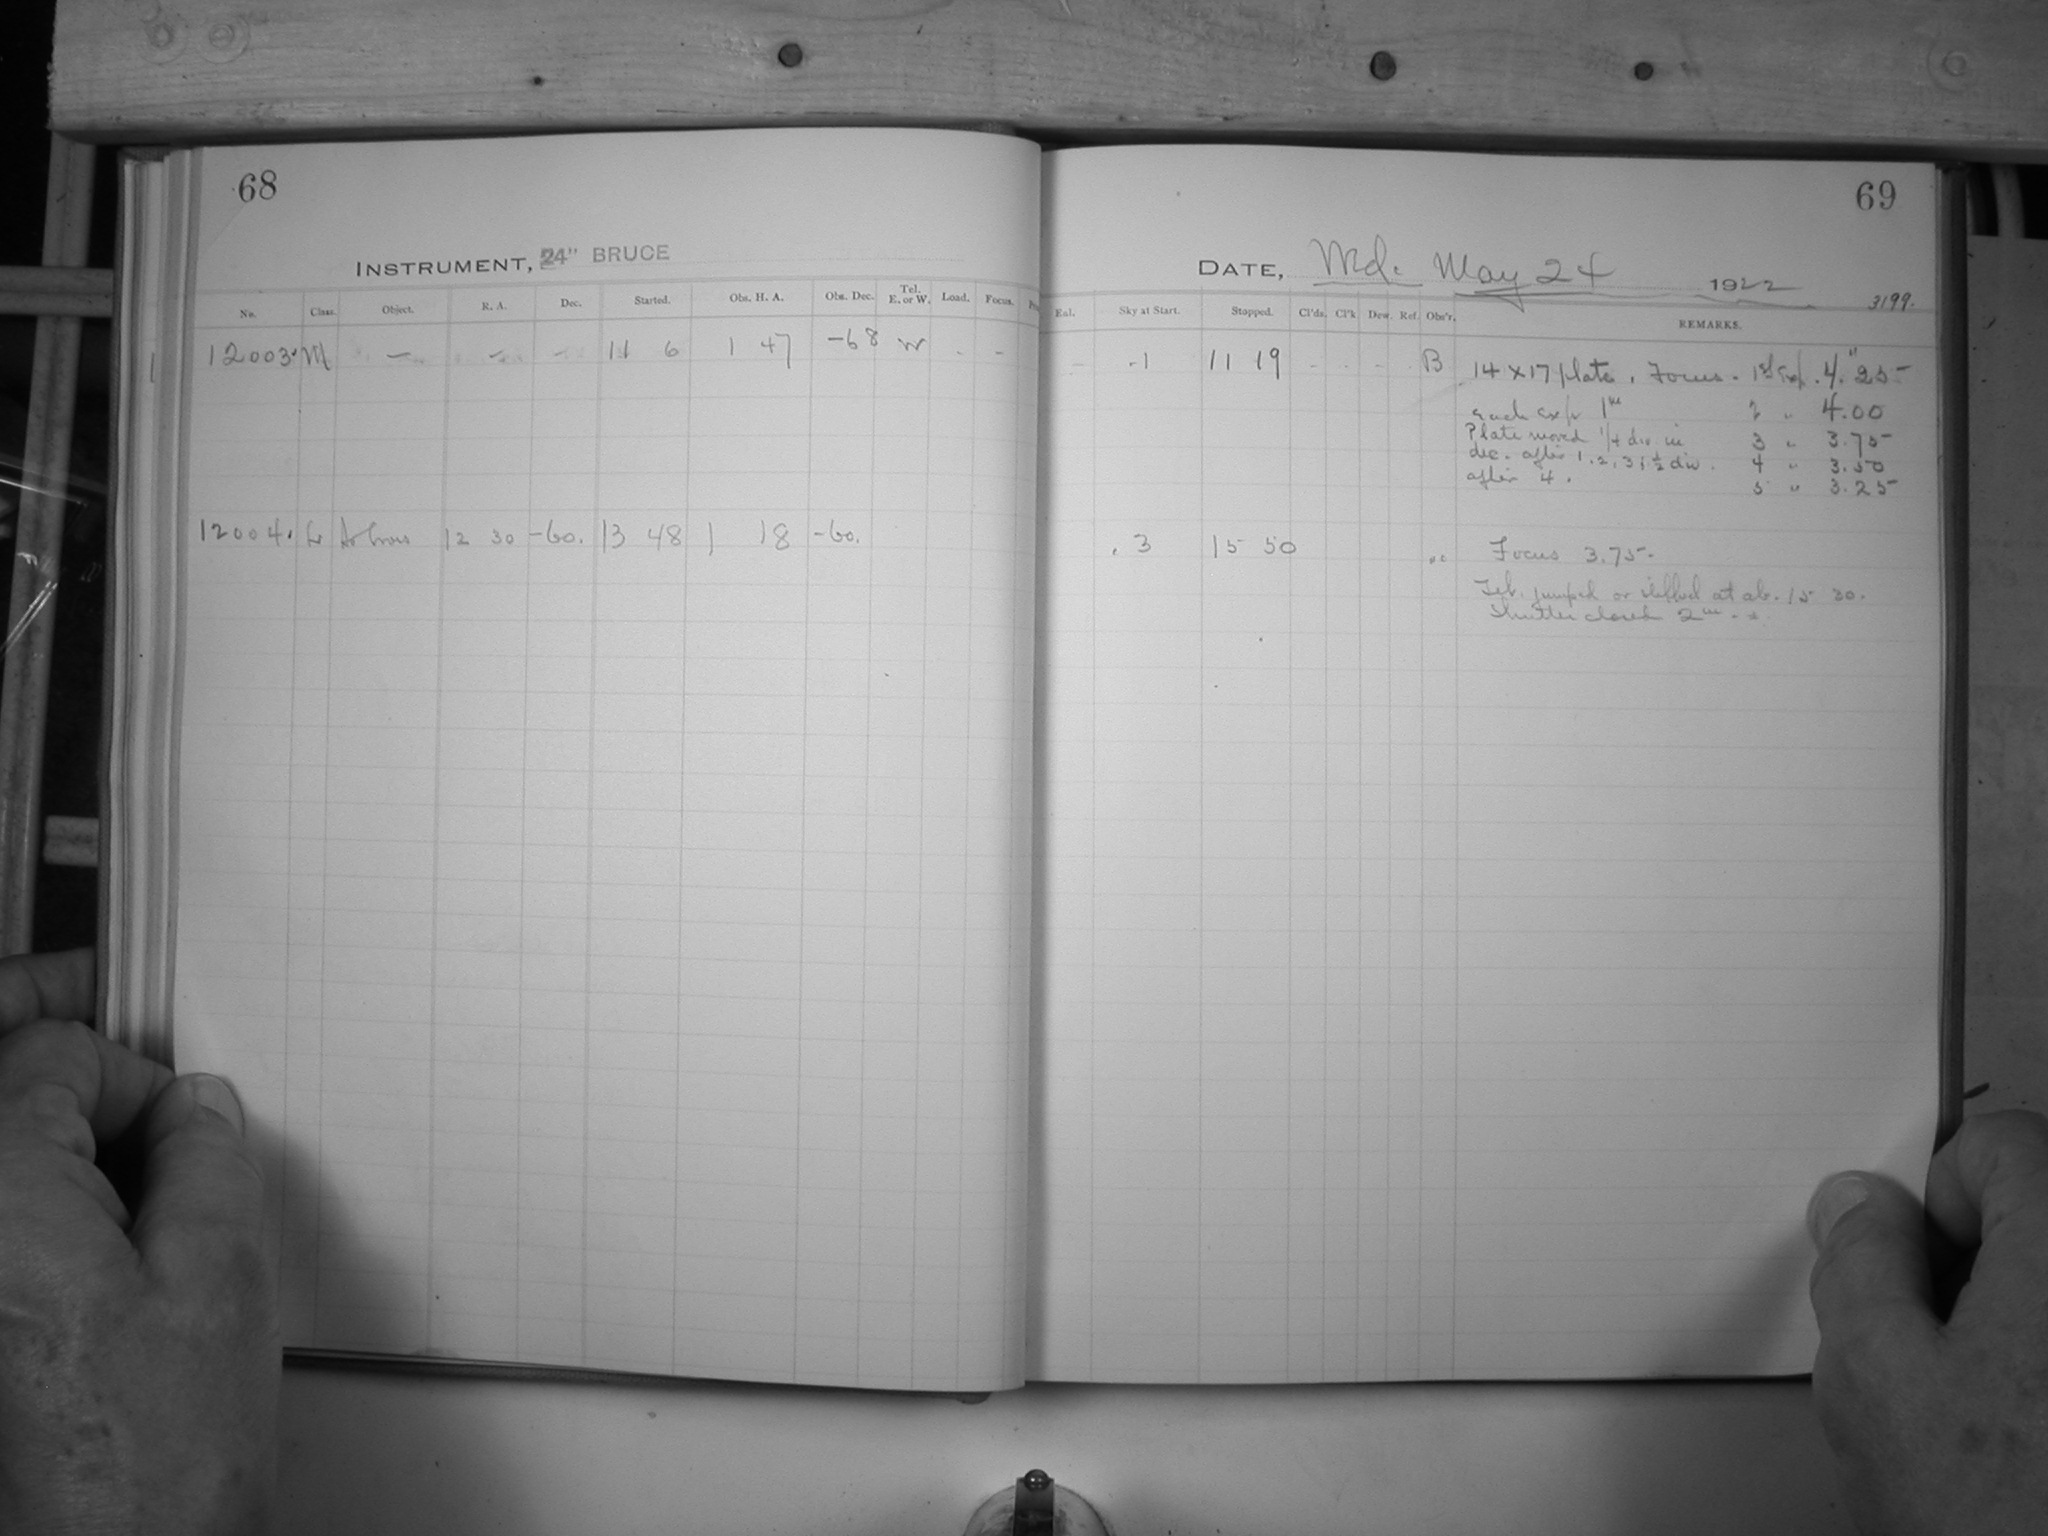 68
INSTRUMENT, 24" BRUCE
No. Class. Object. R. A. Dec. Started. Obs. H. A. Obs. Dec. Tel. E. or W. Load. Focus.
12003. M – – – 11 6 1 47 –68 W - -
12004. L 12 30 –60. 13 48 1 18 –60.
69
DATE, Wd. May 24 1922
3199.
Eul. Sky at Start. Stopped. Cl'ds. Cl'k Dew. Ref. Obs'r. REMARKS.
- .1 11 19 - - - B 14 X 17 plate. Focus. 1st Exp. 4."25
each exp 1m 2 " 4.00
Plate moved 1/4 div. in 3 " 3.75
dec. after 1, 2, 3; ½ div. 4 " 3.50
after 4. 5 " 3.25
.3 15 50 " Focus 3.75
Tel. jumped or slipped at ab. 15 30.
Shutter closed 2m